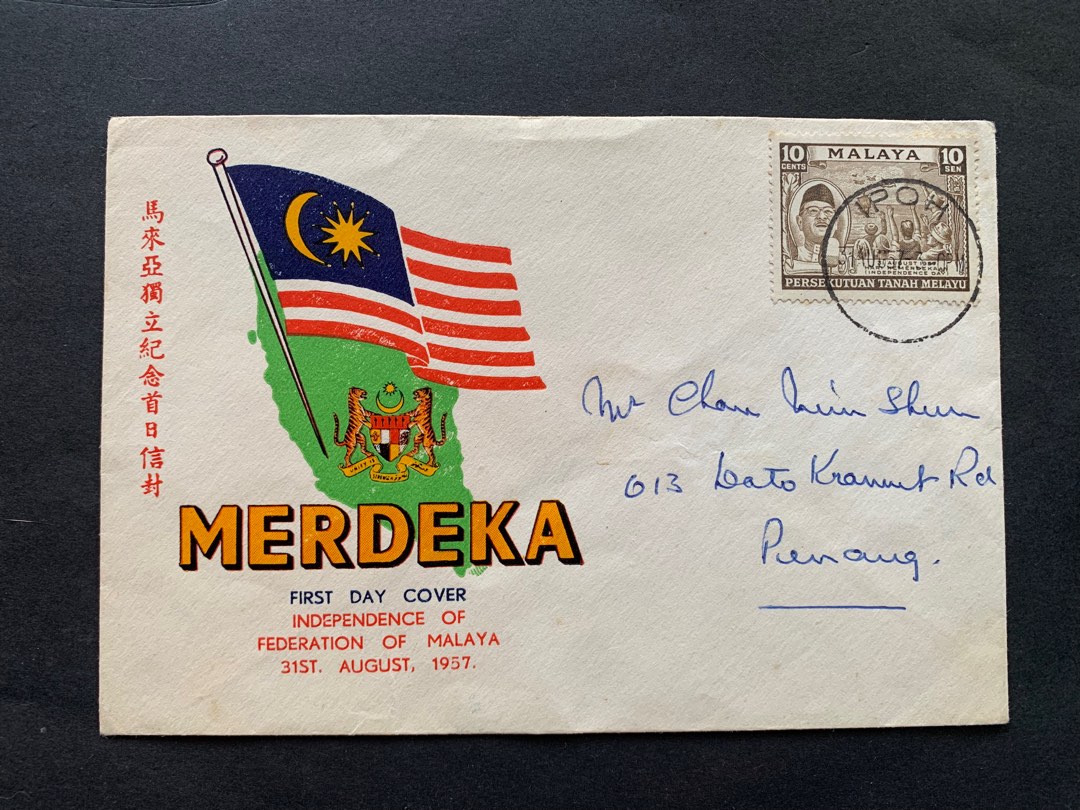 馬來亞獨立紀念首日信封
10 MALAYA 10
CENTS SEN
IPOH
31 AUGUST 1957
HARI KEMERDEKAAN
INDEPENDENCE DAY
PERSEKUTUAN TANAH MELAYU
Mr Chan
613 Dato Kramat Rd
Penang.
MERDEKA
FIRST DAY COVER
INDEPENDENCE OF
FEDERATION OF MALAYA
31ST. AUGUST, 1957.